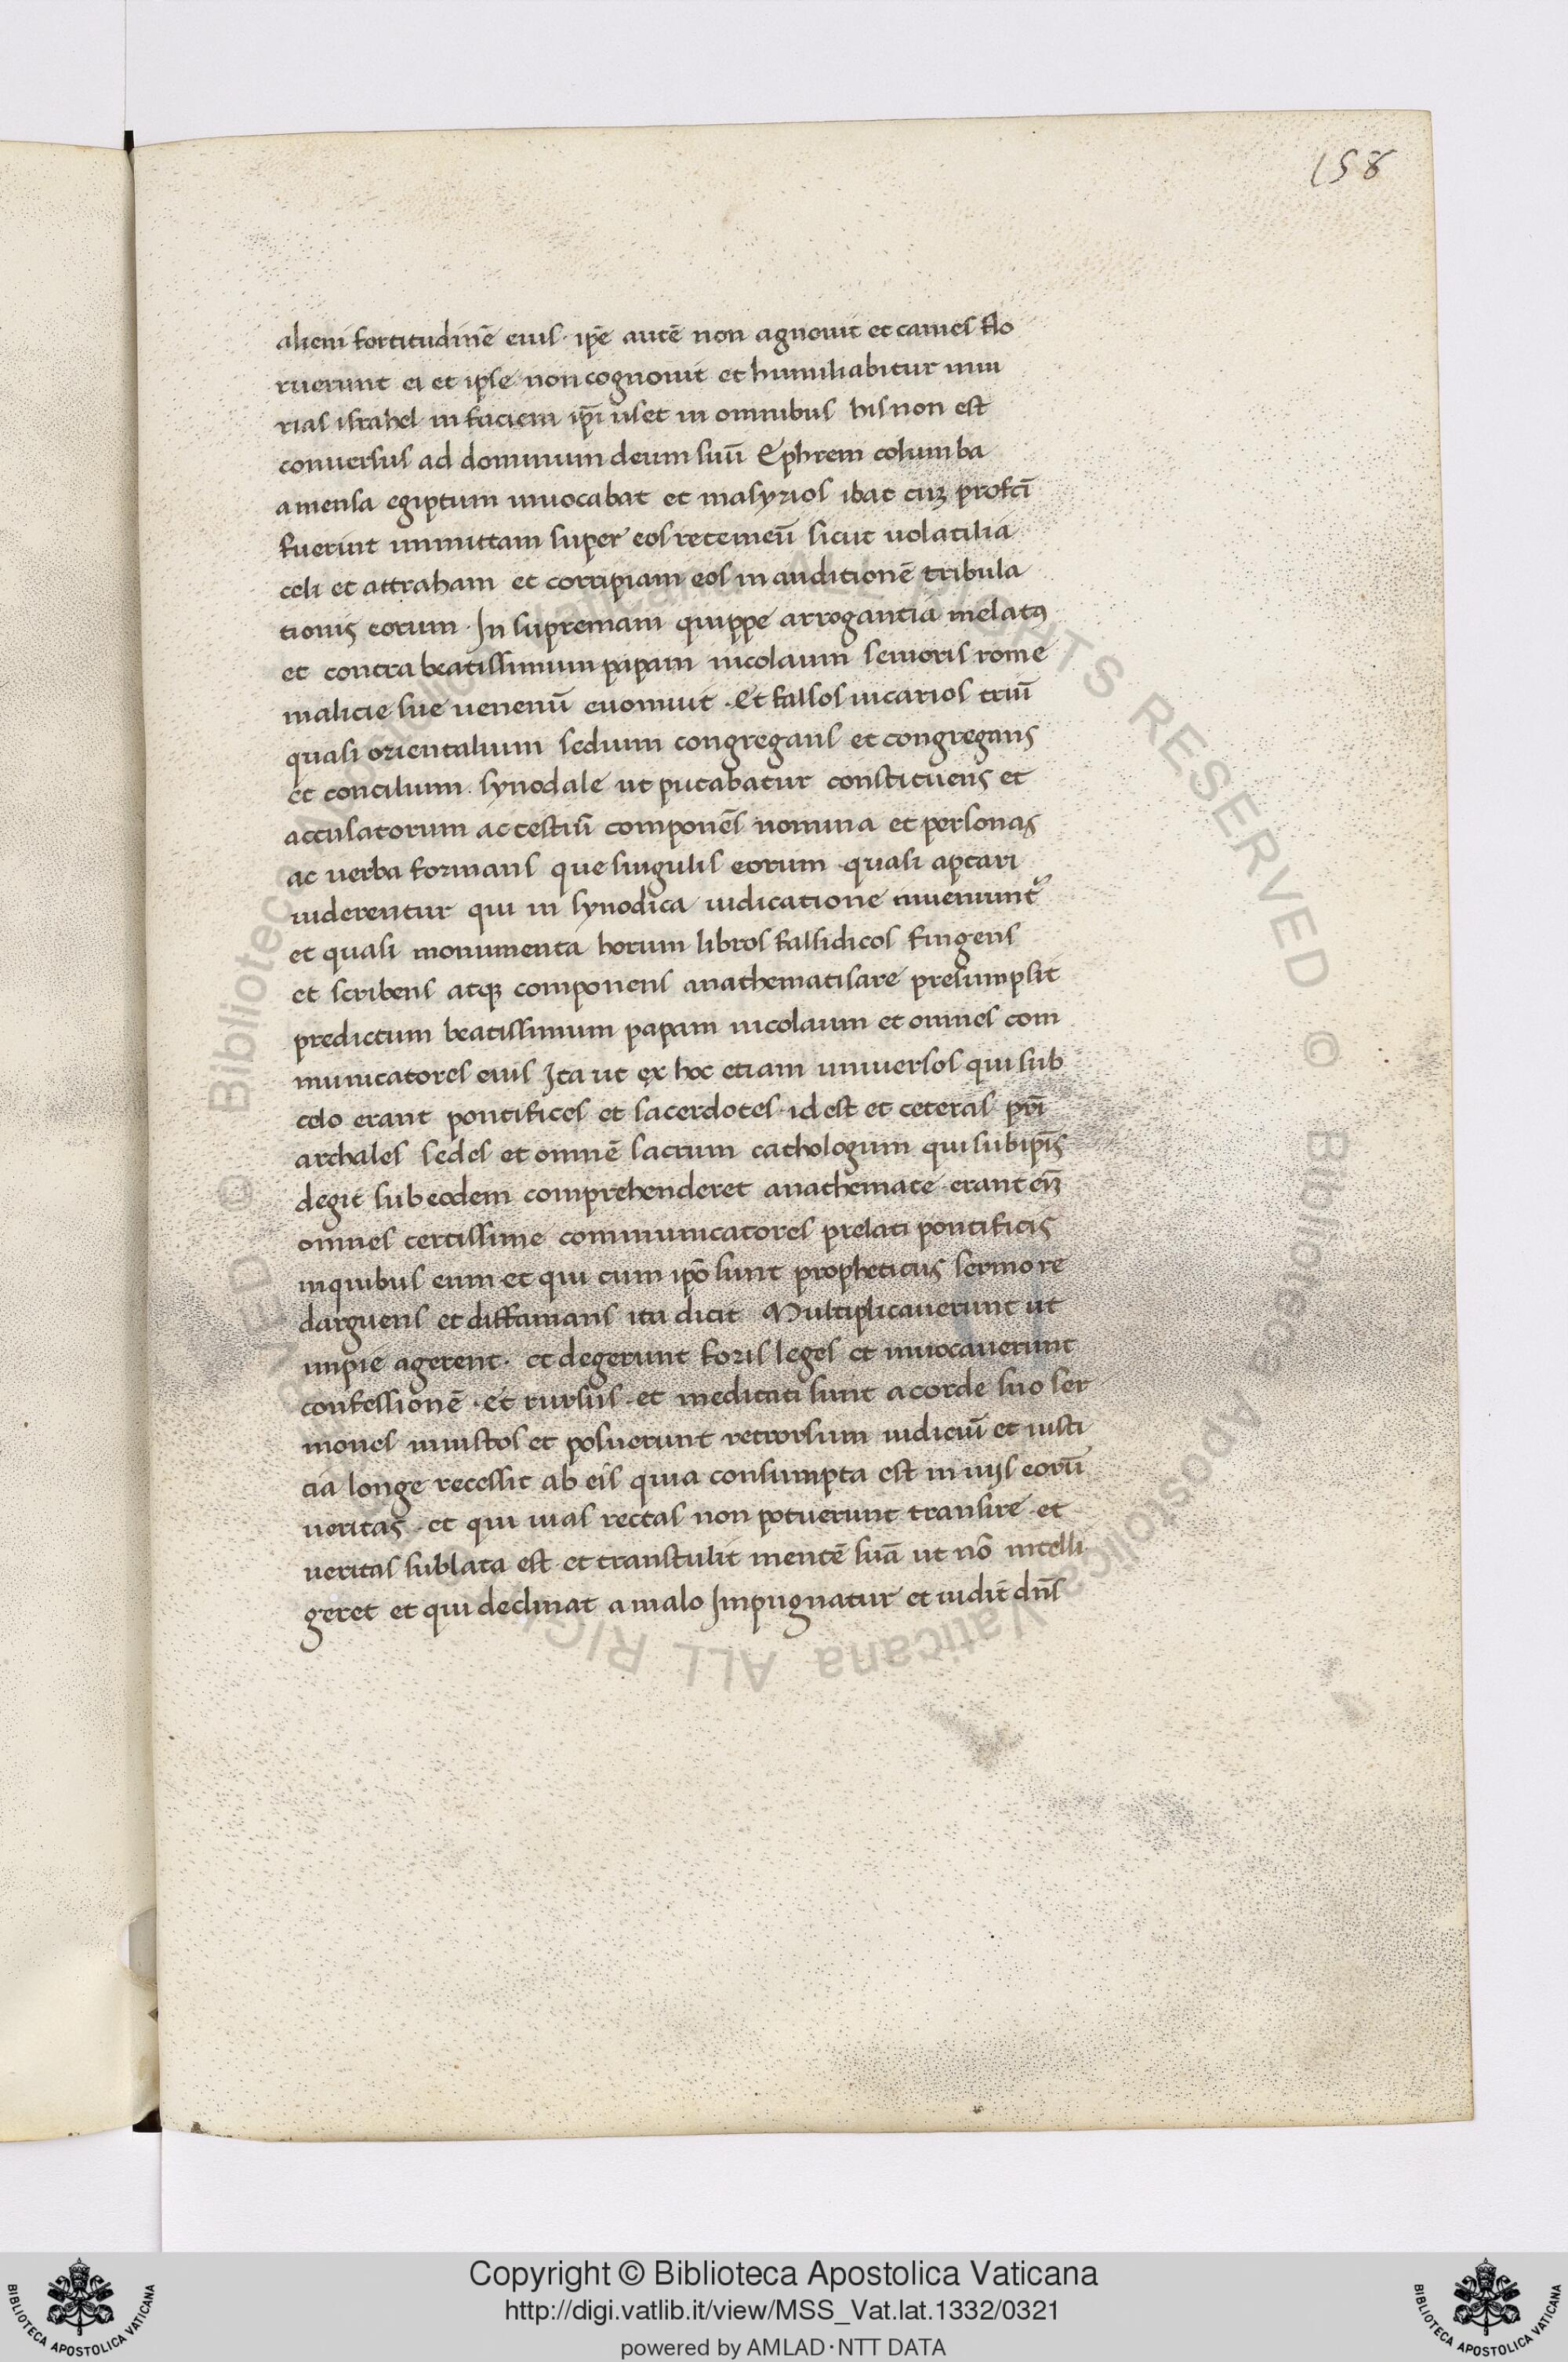 158
alieni fortitudinē eius · ipē autē non agnouit et canies flo
ruerunt ei et ipse non cognouit et humiliabitur iniu
rias israhel in faciem ip̄i uset in omnibus his non est
conuersus ad dominum deum suū Ephrem columba
amensa egiptum inuocabat et masyrios ibat cuꝫ profcī
fuerint inmittam super eos retemeū sicut uolatilia
celi et attraham et corripiam eos in auditionē tribula
tionis eorum · In supremam quippe arrogantia melatꝯ
et contra beatissimum papam nicolaum senioris rome
malicie sue uenenū euomuit · Et falsos uicarios triū
quasi orientalium sedium congregans et congregans
et concilium · synodale ut putabatur constituens et
accusatorum ac testiū componēs nomina et personas
ac uerba formans que singulis eorum · quasi aptari
uiderentur qui in synodica iudicatione inueniunt᷑
et quasi monumenta horum libros falsidicos fingens
et scribens atqꝫ componens anathematisare presumpsit
predictum beatissimum papam nicolaum et omnes com
municatores eius Ita ut ex hoc etiam uniuersos qui sub
celo erant pontifices et sacerdotes · id est et ceteras pr̄i
archales sedes et omnē sacrum cathologum qui sub ip̄is
degit sub eodem comprehenderet anathemate · erant eīꝫ
omnes certissime communicatores prelati pontificis
inquibus eum et qui cum ip̄o sunt propheticus sermo re
darguens et diffamans ita dicit Multiplicauerunt ut
impie agerent · et degerunt foris leges et inuocauerunt
confessionē · et rursus · et meditati sunt a corde suo ser
mones iniustos et posuerunt retrorsum iudiciū et iusti
cia longe recessit ab eis quia consumpta est in uijs eorū
ueritas · et qui uias rectas non potuerunt transire · et
ueritas sublata est · et transtulit mentē suā ut nō intelli
geret et qui declinat a malo Impugnatur et uidit dn̄s
Copyright © Biblioteca Apostolica Vaticana
http://digi.vatlib.it/view/MSS_Vat.lat.1332/0321
powered by AMLAD·NTT DATA